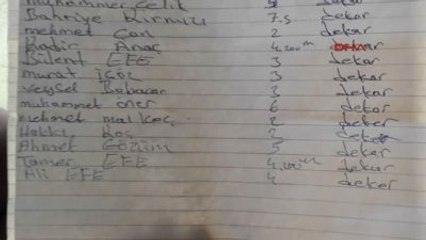 muhammer Çelik 5 dekar
Bahriye Kırmızı 7.5 dekar
mehmet Can 2 dekar
Kadir Anaç 4,200m dekar
Bülent EFE 3 dekar
murat içöz 3 dekar
veysel Babacan 3 dekar
muhammet öner 6 dekar
mehmet malkoç 2 deker
Hakkı Koç 2 deker
Ahmet Gözüm 5 deker
Tamer EFE 4,200m dekar
Ali EFE 4 deker